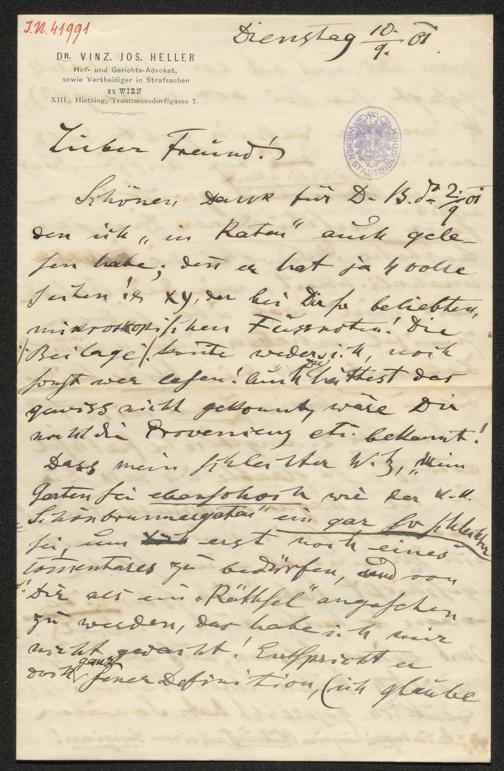 J.N. 41991
Dienstag 10./9. 01.
DR. VINZ. JOS. HELLER
Hof- und Gerichts-Advokat,
sowie Vertheidiger in Strafsachen
zu WIEN
XIII., Hietzing, Trauttmansdorffgasse 7.
WIENER STADTBIBLIOTHEK
Lieber Freund!
Schönen Dank für D. B. 2./9 01
den ich „in Raten" auch gele-
sen habe; denn er hat ja 4 volle
Seiten! der bei Dir so beliebten,
mikroskopischen Fussnoten! Die
Beilage konnte weder ich, noch
sonst wer lesen! Auch Du hättest das
gewiss nicht gekonnt, wäre Dir
nicht die Provenienz etc. bekannt!
Dass mein schlechter Witz, „Mein
Garten sei ebenso hoch wie der k. k.
Schönbrunnergarten" ein gar so schlechter
sei, um erst noch eines
Comentares zu bedürfen, und von
Dir als ein „Räthsel" angesehen
zu werden, das habe ich mir
nicht gedacht! Entspricht er
doch ganz jener Definition, (ich glaube